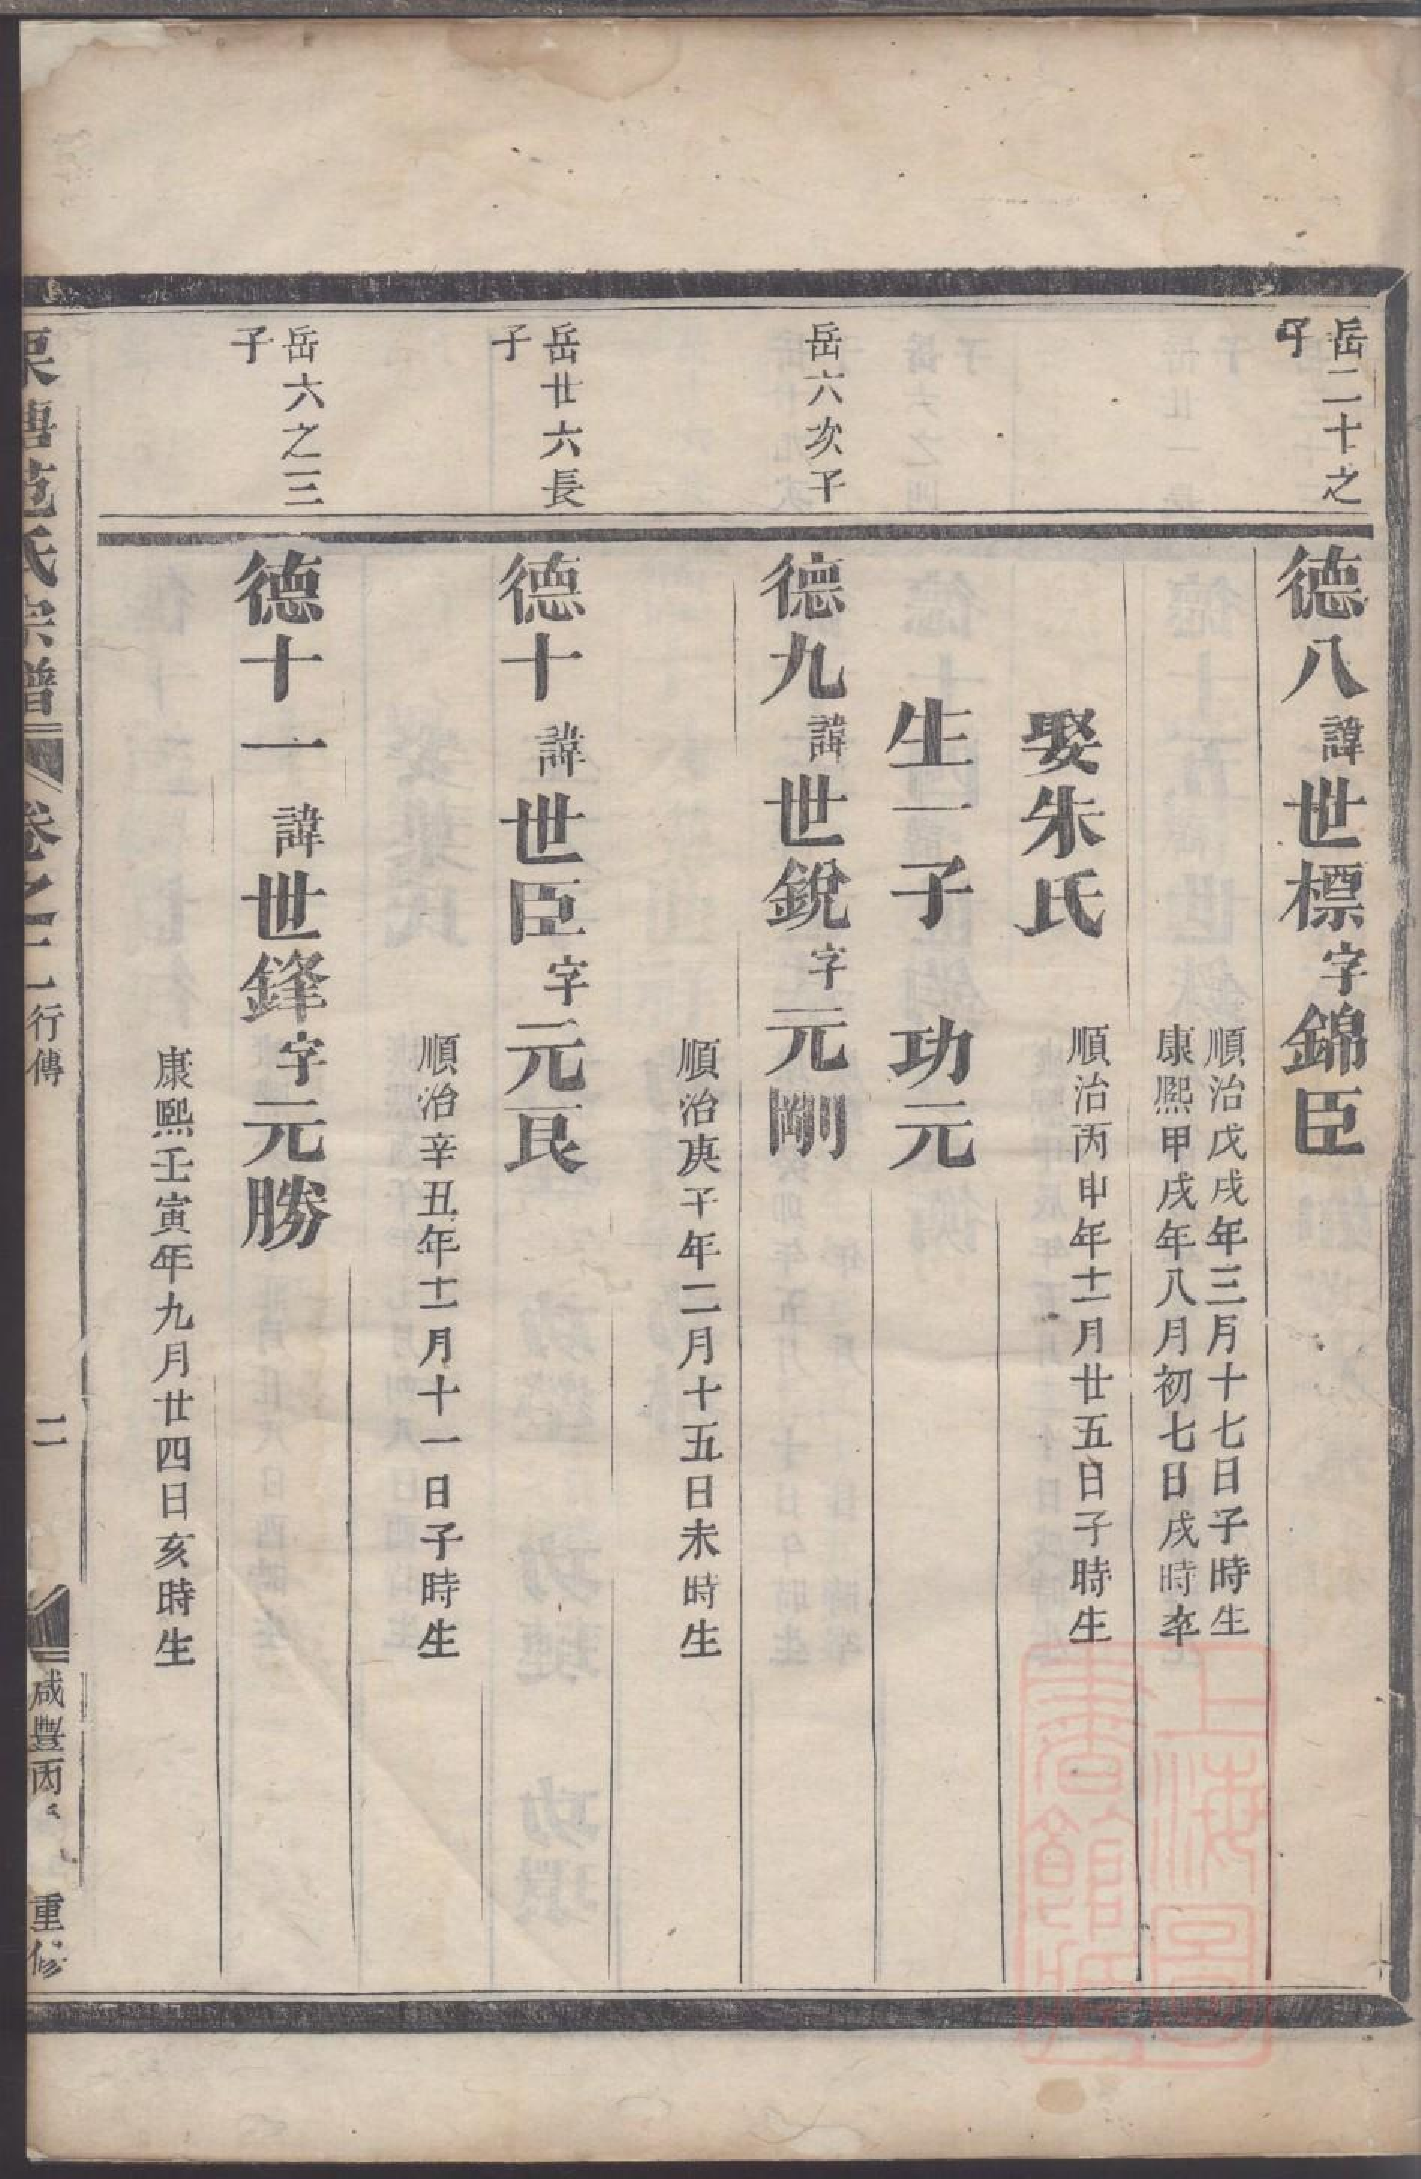 岳二十之
子
德八諱世標字錦臣
順治戊戌年三月十七日子時生
康熙甲戌年八月初七日戌時卒
娶朱氏
順治丙申年十一月廿五日子時生
生一子 功元
岳六次子
德九諱世銳字元剛
順治庚子年二月十五日未時生
岳廿六長
子
德十諱世臣字元良
順治辛丑年十一月十一日子時生
岳六之三
子
德十一諱世鋒字元勝
康熙壬寅年九月廿四日亥時生
栗塘范氏宗譜 卷之二 行傳 二 咸豐丙 重修
上海圖
書館藏